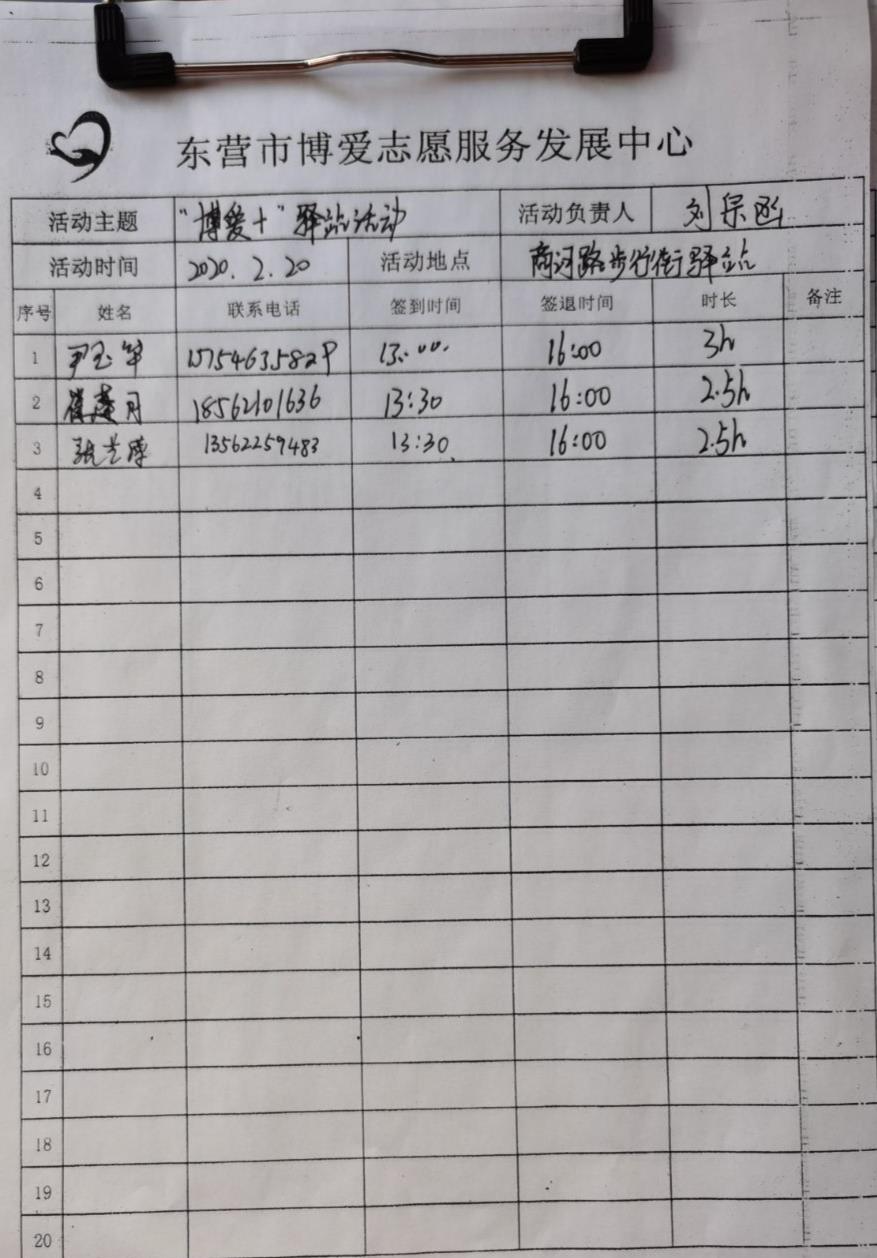 东营市博爱志愿服务发展中心
活动主题 “博爱+”驿站活动 活动负责人 刘
活动时间 2020.2.20 活动地点 商河路步行街驿站
序号 姓名 联系电话 签到时间 签退时间 时长 备注
1 尹玉华 15754635829 13:00 16:00 3h
2 崔 月 18562101636 13:30 16:00 2.5h
3 张兰 13562259483 13:30 16:00 2.5h
4
5
6
7
8
9
10
11
12
13
14
15
16
17
18
19
20